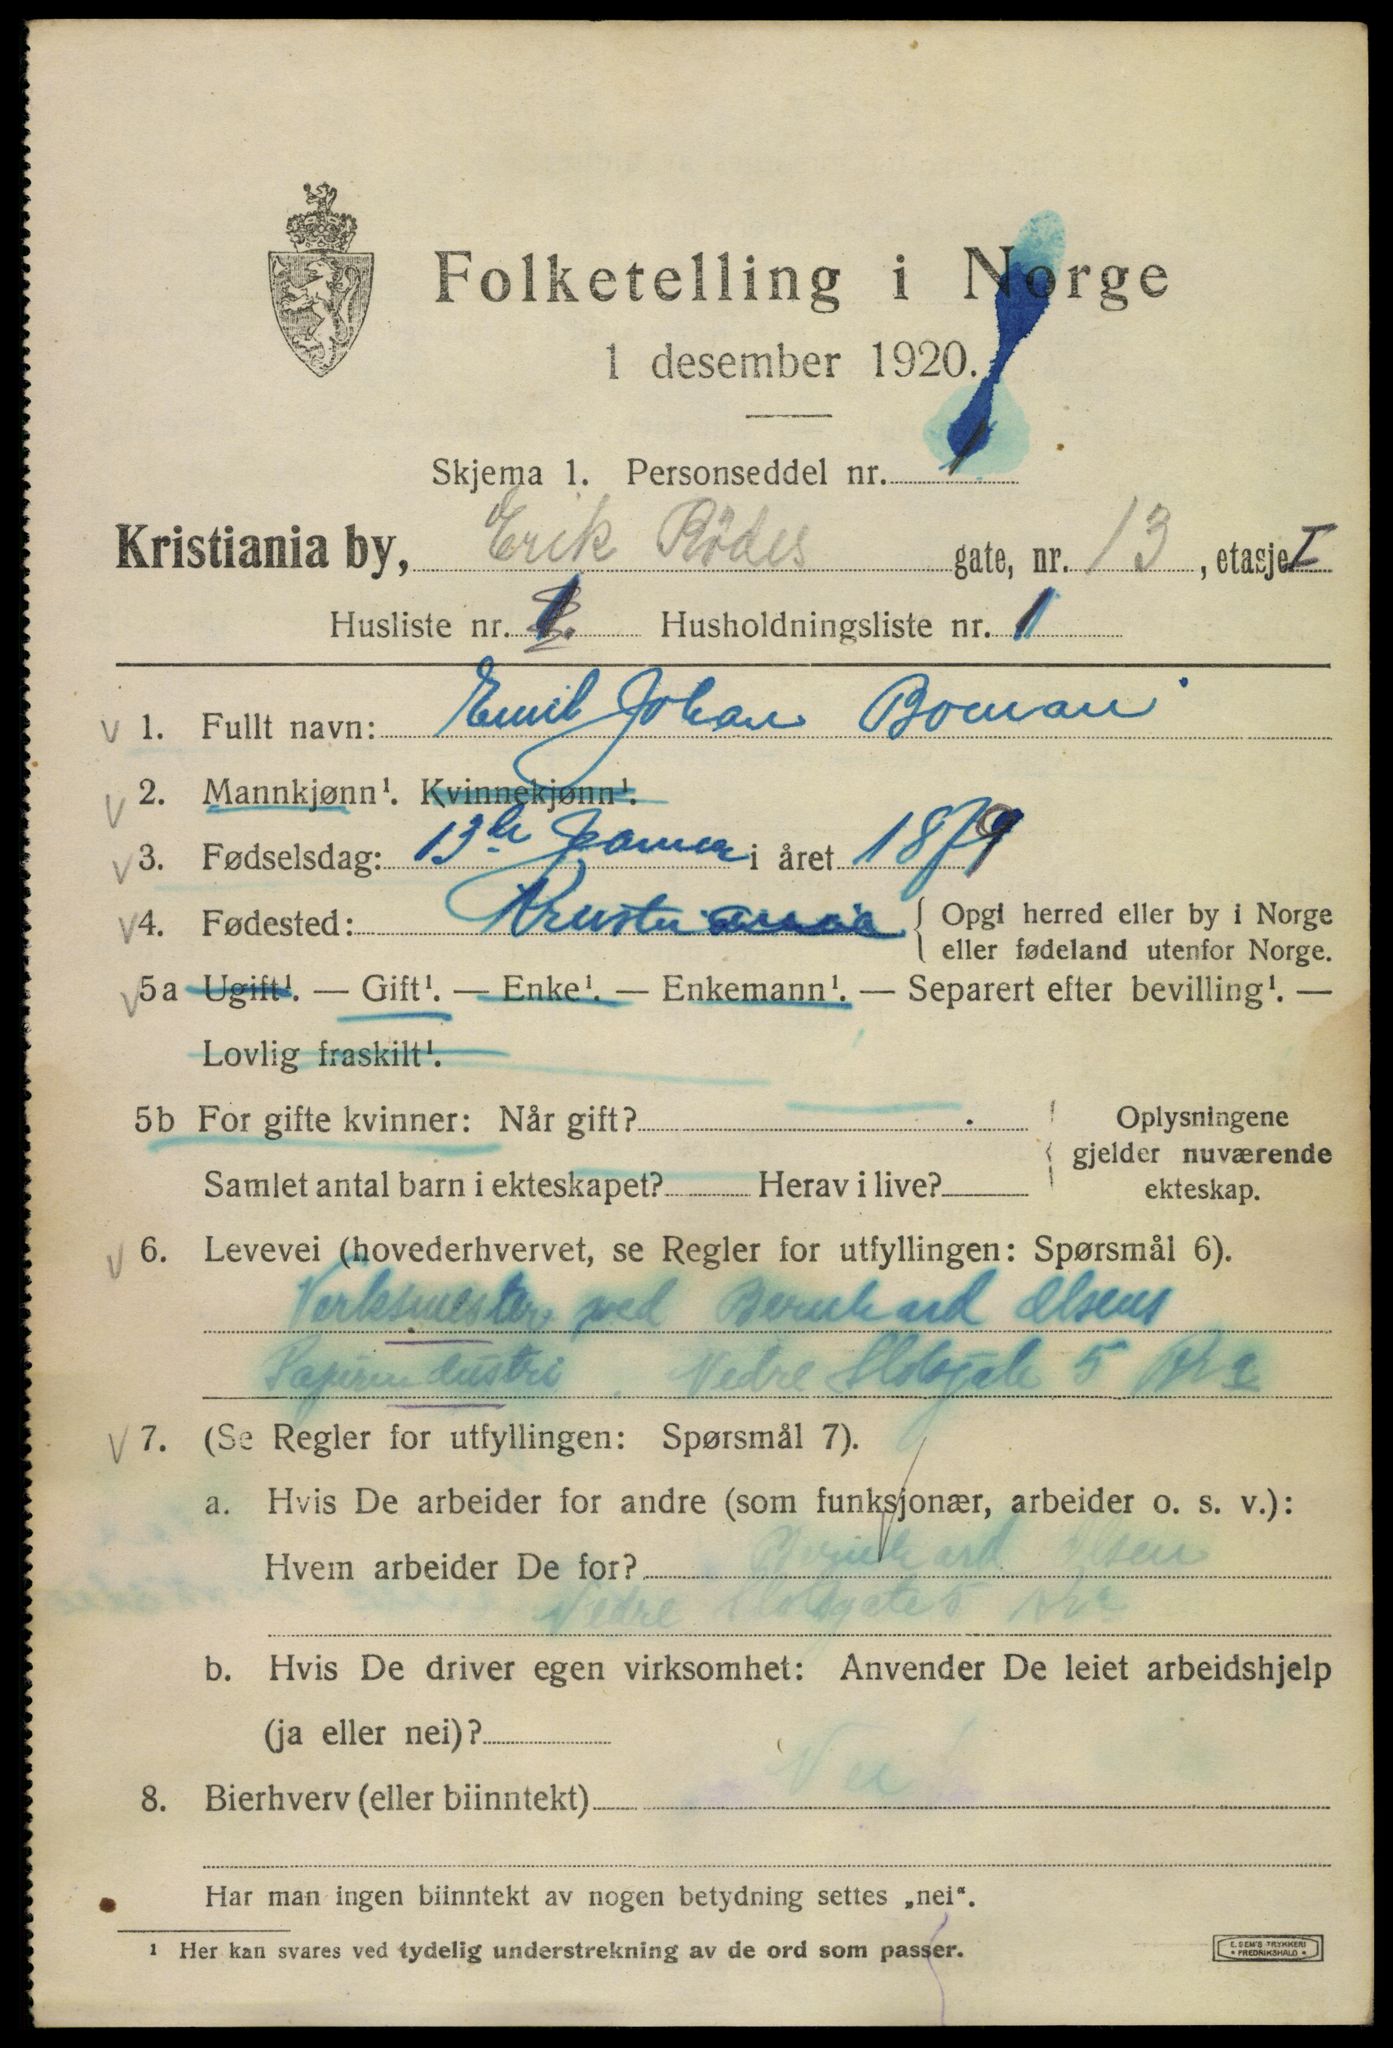 Folketelling i Norge
1 desember 1920.
Skjema 1. Personseddel nr. 1
Kristiania by, Erik Rödes gate, nr. 13, etasje I
Husliste nr. 1 Husholdningsliste nr. 1
v 1. Fullt navn: Emil Johan Boman
v 2. Mannkjønn¹. Kvinnekjønn¹.
v 3. Fødselsdag: 13de Januar i året 1879
v 4. Fødested: Kristiania { Opgi herred eller by i Norge
eller fødeland utenfor Norge.
v 5a Ugift¹. — Gift¹. — Enke¹. — Enkemann¹. — Separert efter bevilling¹. —
Lovlig fraskilt¹.
5b For gifte kvinner: Når gift?
Samlet antal barn i ekteskapet? Herav i live?
Oplysningene
gjelder nuværende
ekteskap.
v 6. Levevei (hovederhvervet, se Regler for utfyllingen: Spørsmål 6).
Verksmester ved Bernhard Olsens
Papirindustri. Nedre Slotsgate 5 Kra
v 7. (Se Regler for utfyllingen: Spørsmål 7).
a. Hvis De arbeider for andre (som funksjonær, arbeider o. s. v.):
Hvem arbeider De for? Bernhard Olsen
Nedre Slotsgate 5 Kra
b. Hvis De driver egen virksomhet: Anvender De leiet arbeidshjelp
(ja eller nei)?
8. Bierhverv (eller biinntekt) Nei
Har man ingen biinntekt av nogen betydning settes „nei“.
¹ Her kan svares ved tydelig understrekning av de ord som passer.
E. SEM'S TRYKKERI
• FREDRIKSHALD •